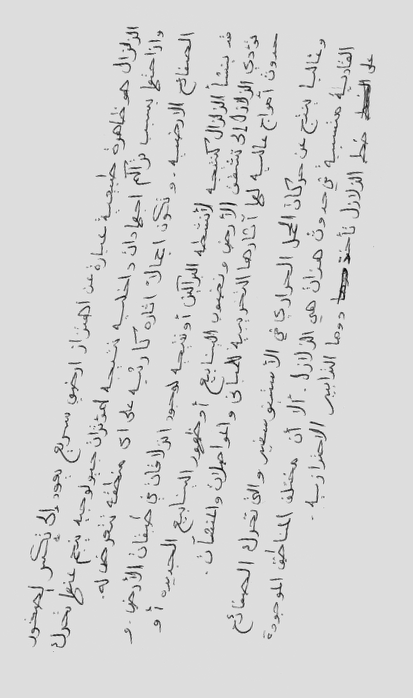 الزلزال هو ظاهرة طبيعية عبارة عن اهتزاز ارضي سريع يعود إلى تكسر الصخور
وازاحتها بسبب تراكم اجهادات داخلية نتيجة لمؤثرات جيولوجية ينجم عنها تحرك
الصفائح الارضية. وتكون اجمالا اثاره كارثية على اى منطقة يتعرض له.
قد ينشأ الزلزال كنتيجة لأنشطة البراكين أو نتيجة لوجود انزلاقات في طبقات الأرض. و
تؤدي الزلازل إلى تشقق الأرض ونضوب الينابيع أو ظهور الينابيع الجديدة أو
حدوث أمواج عالية لها آثارها التخريبية للمباني والمواصلات والمنشآت.
وغالبا ينتج عن حركات الحمل الحراري في الأستينوسفير والتي تحرك الصفائح
القارية متسببة في حدوث هزات هي الزلازل. ألا أن مختلف المناطق الموجودة
على خط الزلازل تأخذ دوما التدابير الاحترازية.